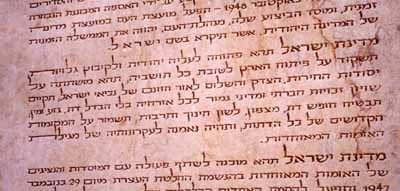 על-ידי האספה המכוננת הנבחרת
באוקטובר 1948 – תפעל מועצת העם כמועצת מדינה
זמנית, ומוסד הביצוע שלה, מנהלת-העם, יהווה את הממשלה הזמנית
של המדינה היהודית, אשר תיקרא בשם ישראל.
מדינת ישראל תהא פתוחה לעליה יהודית ולקיבוץ גלויות;
תשקוד על פיתוח הארץ לטובת כל תושביה; תהא מושתתה על
יסודות החירות, הצדק והשלום לאור חזונם של נביאי ישראל; תקיים
שויון זכויות חברתי ומדיני גמור לכל אזרחיה בלי הבדל דת, גזע ומין;
תבטיח חופש דת, מצפון, לשון, חינוך ותרבות; תשמור על המקומות
הקדושים של כל הדתות; ותהיה נאמנה לעקרונותיה של מגילת
האומות המאוחדות.
מדינת ישראל תהא מוכנה לשתף פעולה עם המוסדות והנציגים
של האומות המאוחדות בהגשמת החלטת העצרת מיום 29 בנובמבר
1947